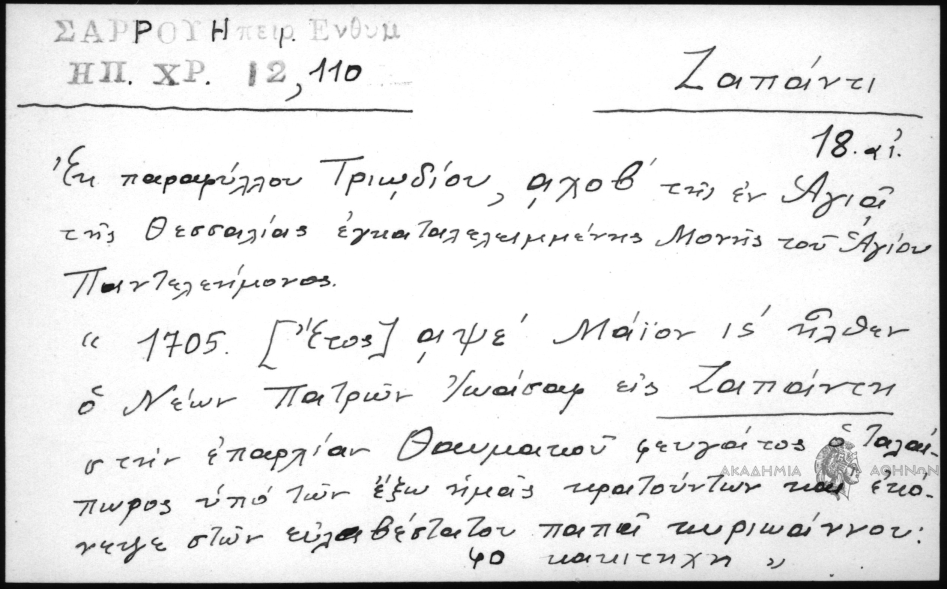 ΣΑΡΡΟΥ Ηπειρ. Ενθυμ
ΗΠ. ΧΡ. 12, 110
Ζαπάντι
18. αἰ.
Ἐκ παραφύλλου Τριῳδίου, ͵αχοβʹ τῆς ἐν Ἁγιᾷ
τῆς Θεσσαλίας ἐγκαταλελειμμένης Μονῆς τοῦ Ἁγίου
Παντελεήμονος.
" 1705. [Ἔτος] ͵αψεʹ Μάϊον ιςʹ ἦλθεν
ὁ Νέων Πατρῶν Ἰωάσαφ εἰς Ζαπάντη
στὴν ἐπαρχίαν Θαυματοῦ φευγάτος ὁ ταλαί-
πωρος ὑπό τῶν ἔξω ἡμᾶς κρατούντων καὶ ἐκό-
νεψε στῶν εὐλαβέστατου παπᾶ κυριωάννου:
ΑΚΑΔΗΜΙΑ ΑΘΗΝΩΝ